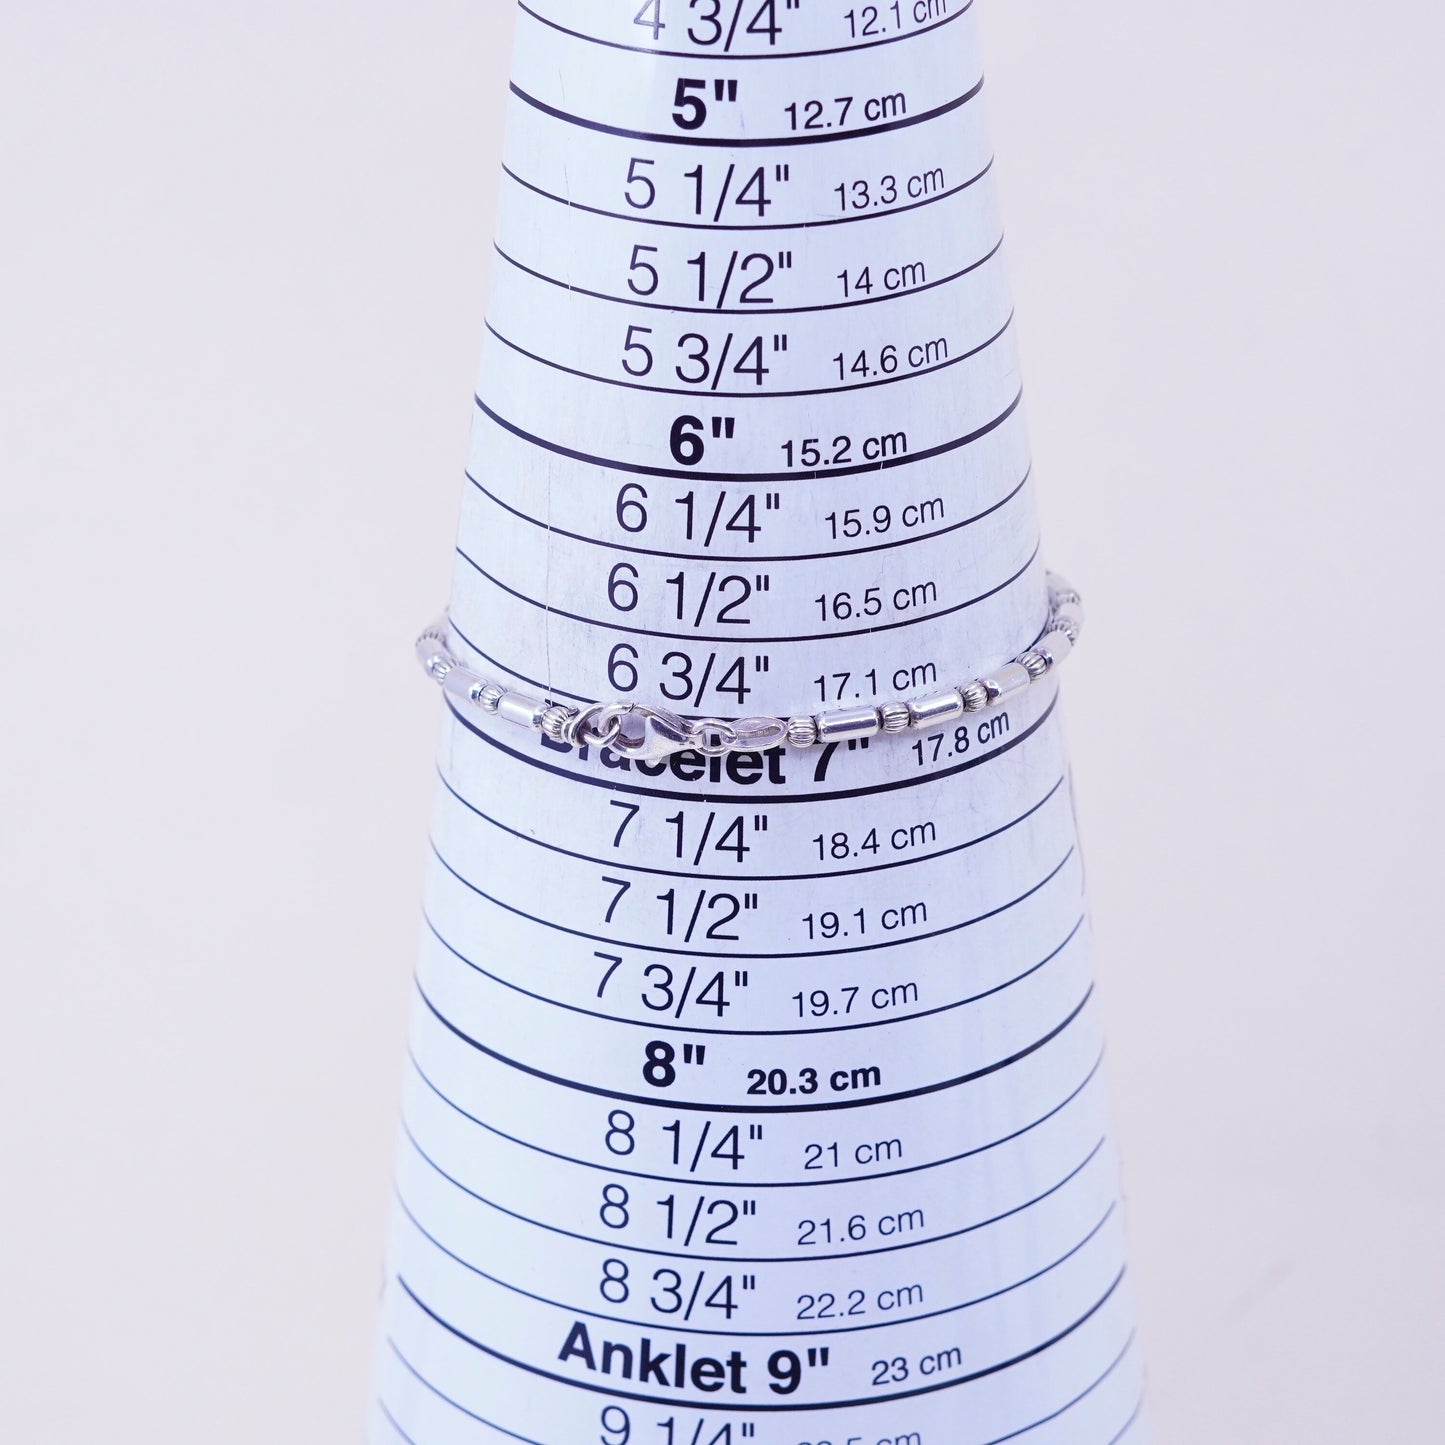 4 3/4" 12.1 cm
5" 12.7 cm
5 1/4" 13.3 cm
5 1/2" 14 cm
5 3/4" 14.6 cm
6" 15.2 cm
6 1/4" 15.9 cm
6 1/2" 16.5 cm
6 3/4" 17.1 cm
Bracelet 7" 17.8 cm
7 1/4" 18.4 cm
7 1/2" 19.1 cm
7 3/4" 19.7 cm
8" 20.3 cm
8 1/4" 21 cm
8 1/2" 21.6 cm
8 3/4" 22.2 cm
Anklet 9" 23 cm
9 1/4" cm